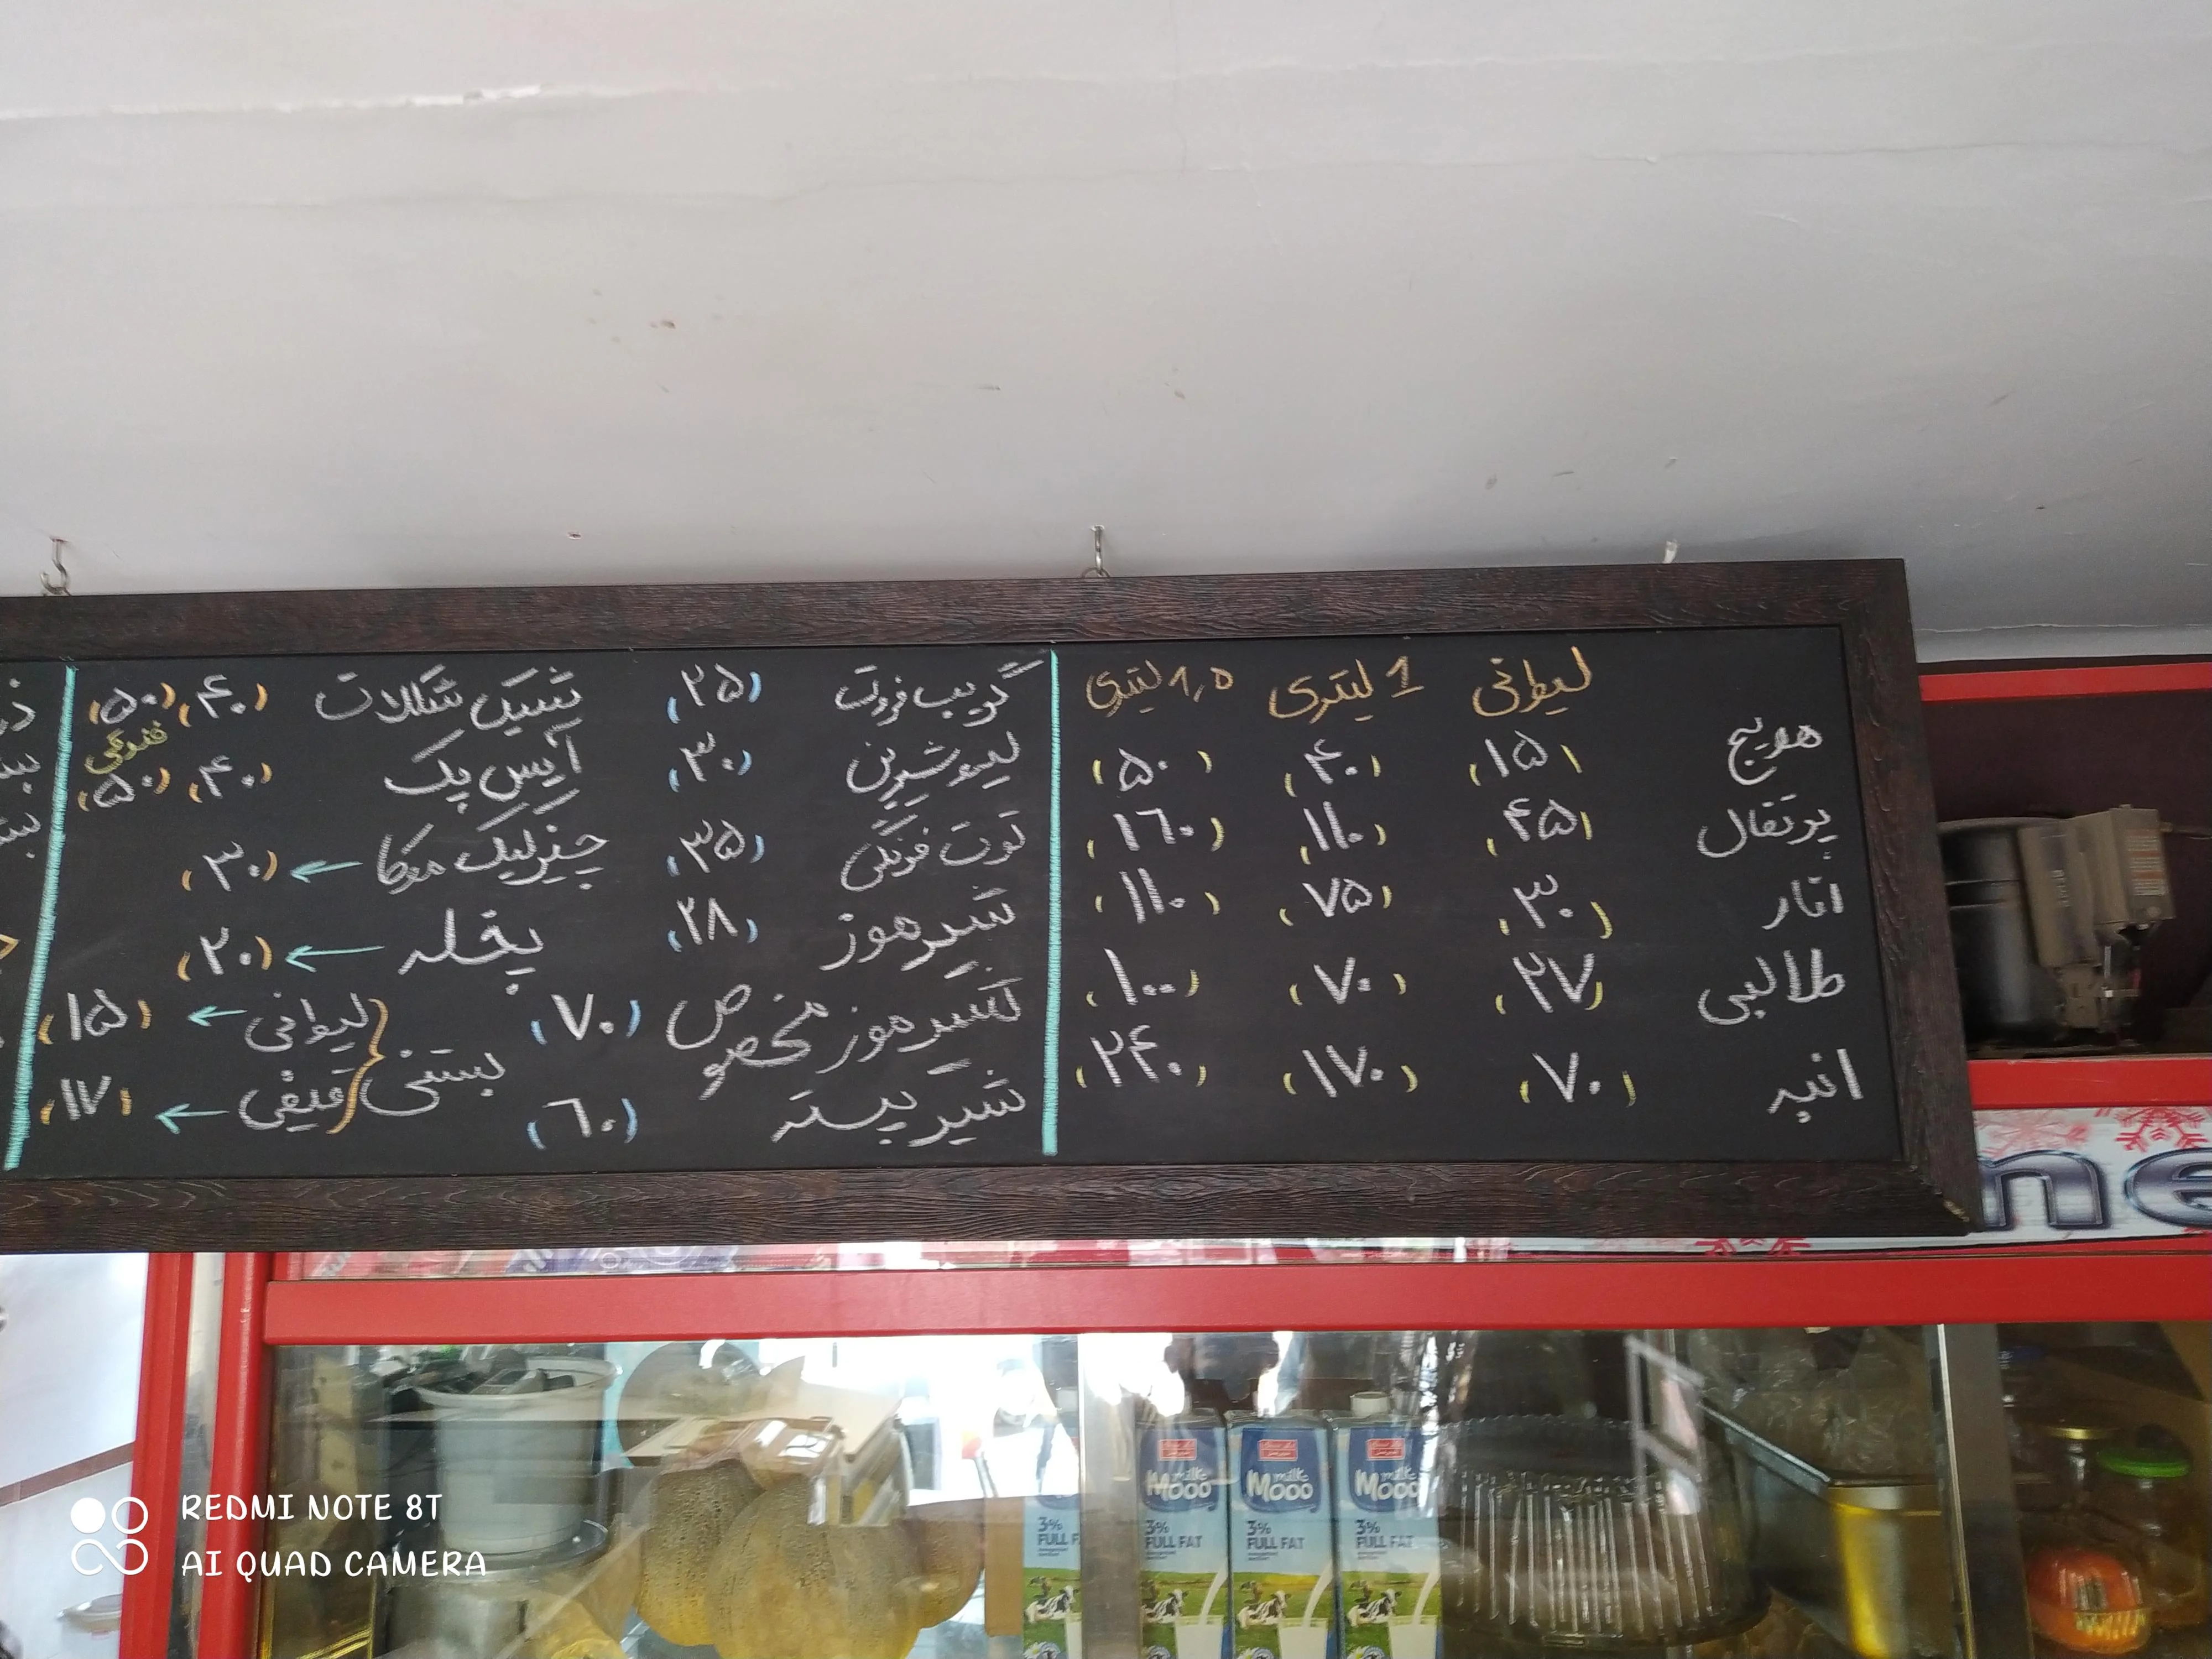 لیوانی 1 لیتری ۱٫۵ لیتری
هویج (۱۵) (۴۰) (۵۰)
پرتقال (۴۵) (۱۱۰) (۱۶۰)
انار (۳۰) (۷۵) (۱۱۰)
طالبی (۲۷) (۷۰) (۱۰۰)
انبه (۷۰) (۱۷۰) (۲۴۰)
گریپ فروت (۲۵)
لیمو شیرین (۳۰)
توت فرنگی (۳۵)
شیر موز (۲۸)
شیر موز مخصوص (۷۰)
شیر پسته (۶۰)
شیک شکلات (۴۰) (۵۰)
فندقی
آیس پک (۴۰) (۵۰)
چیزکیک موکا ← (۳۰)
یخمله ← (۲۰)
بستنی
لیوانی ← (۱۵)
قیفی ← (۱۷)
ne
milk Mooo
3%
FULL FAT
milk Mooo
3%
FULL FAT
milk Mooo
3%
FULL FAT
3%
FULL F
REDMI NOTE 8T
AI QUAD CAMERA